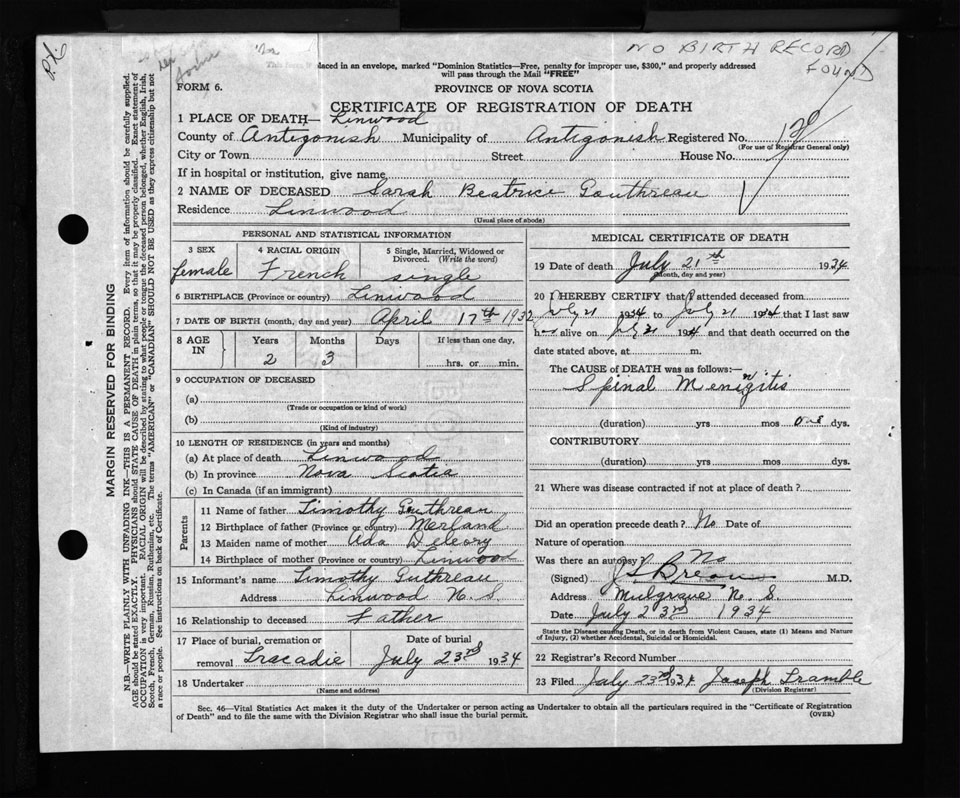 NO BIRTH RECORD
FOUND
John
duced in an envelope, marked "Dominion Statistics—Free, penalty for improper use, $300," and properly addressed
will pass through the Mail "FREE"
FORM 6.
PROVINCE OF NOVA SCOTIA
CERTIFICATE OF REGISTRATION OF DEATH
1 PLACE OF DEATH— Linwood
County of Antigonish Municipality of Antigonish Registered No.
(For use of Registrar General only)
City or Town Street House No.
If in hospital or institution, give name
2 NAME OF DECEASED Sarah Beatrice Gouthreau
Residence Linwood
(Usual place of abode)
PERSONAL AND STATISTICAL INFORMATION
3 SEX 4 RACIAL ORIGIN 5 Single, Married, Widowed or Divorced. (Write the word)
female French single
6 BIRTHPLACE (Province or country) Linwood
7 DATE OF BIRTH (month, day and year) April 17th 1932
8 AGE IN Years Months Days If less than one day,
2 3 hrs. or min.
9 OCCUPATION OF DECEASED
(a)
(Trade or occupation or kind of work)
(b)
(Kind of industry)
10 LENGTH OF RESIDENCE (in years and months)
(a) At place of death Linwood
(b) In province Nova Scotia
(c) In Canada (if an immigrant)
Parents
11 Name of father Timothy Gouthreau
12 Birthplace of father (Province or country) Merland
13 Maiden name of mother Ada Deleory
14 Birthplace of mother (Province or country) Linwood
15 Informant's name Timothy Guthreau
Address Linwood N. S.
16 Relationship to deceased Father
17 Place of burial, cremation or Date of burial
removal Tracadie July 23rd 1934
18 Undertaker
(Name and address)
MEDICAL CERTIFICATE OF DEATH
19 Date of death July 21th 1934
(Month, day and year)
20 I HEREBY CERTIFY that I attended deceased from
July 21 1934 to July 21 1934 that I last saw
h alive on July 21 1934 and that death occurred on the
date stated above, at m.
The CAUSE of DEATH was as follows:—
Spinal Menigitis
(duration) yrs mos one dys.
CONTRIBUTORY
(duration) yrs. mos. dys.
21 Where was disease contracted if not at place of death?
Did an operation precede death? No Date of
Nature of operation
Was there an autopsy? No
(Signed) M.D.
Address Mulgrave N. S.
Date July 23rd 1934
State the Disease causing Death, or in death from Violent Causes, state (1) Means and Nature
of Injury, (2) whether Accidental, Suicidal or Homicidal.
22 Registrar's Record Number
23 Filed July 23rd 1934 Joseph Tramble
(Division Registrar)
Sec. 46—Vital Statistics Act makes it the duty of the Undertaker or person acting as Undertaker to obtain all the particulars required in the "Certificate of Registration
of Death" and to file the same with the Division Registrar who shall issue the burial permit.
(OVER)
MARGIN RESERVED FOR BINDING
N.B.—WRITE PLAINLY WITH UNFADING INK—THIS IS A PERMANENT RECORD. Every item of information should be carefully supplied.
AGE should be stated EXACTLY. PHYSICIANS should STATE CAUSE OF DEATH in plain terms, so that it may be properly classified. Exact statement of
OCCUPATION is very important. RACIAL ORIGIN will be described by stating to what people or tongue the deceased person belonged, whether English, Irish,
Scotch, French, German, Russian, Ruthenian, etc. The terms "AMERICAN" or "CANADIAN" SHOULD NOT BE USED as they express citizenship but not
a race or people. See instructions on back of Certificate.